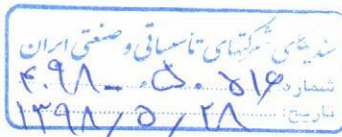 سندیکای شرکتهای تأسیساتی و صنعتی ایران
شماره: ۴۰۹۸ - ۵۰۵۱۶
تاریخ: ۱۳۹۸/۵/۲۸